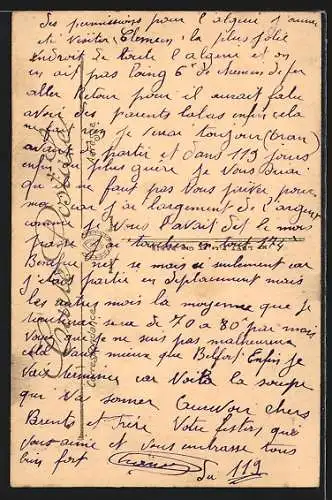 des permissions pour l'algerie j'aurai
et visiter Clemcen : la plus jolie
endroit de toute l'algerie et on
en ait pas loing 6h de chemin de fer
aller Retour pour il aurait falu
avoir des parents labas enfin cela
ne rien je serai toujour (Oran)
avant de partir et dans 119 jours
enfin plus guère je Vous
que ne faut pas Vous priver pour
moi car j'ai largement de l'argent
comme je Vous l'avait dit le mois
passé j'ai toucher en tout 174
mais rien que se mois ci seulement car
j'étais partie en deplacement mais
les autres mois la moyenne que je
toucherai sera de 70 a 80 par mois
Vous que je ne suis pas malheureux
cela Vaut mieux que Belfort. Enfin je
Vais terminer car Voila la soupe
que Va sonner Recevoir chers
Parents et frère Votre fils que
vous aime et vous embrasse tous
bien fort
du 119
Carte Postale
Correspondance
Adresse